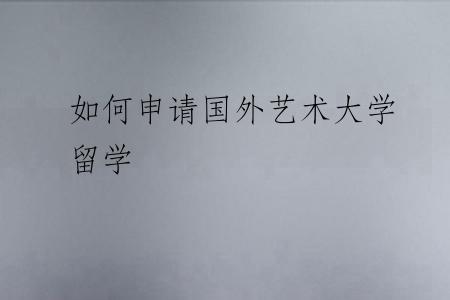 如何申请国外艺术大学
留学